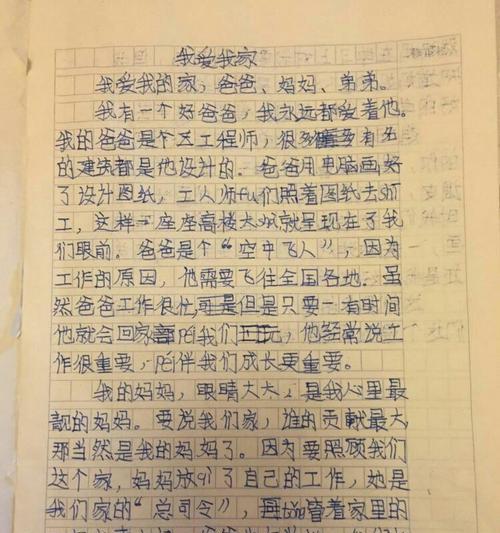 我爱我家
我爱我的家，爸爸、妈妈、弟弟。
我有一个好爸爸，我永远都爱着他。
我的爸爸是个工程师，很多有名
的建筑都是他设计的。爸爸用电脑画好
了设计图纸，工人师fu们照着图纸去si
工，这样一座座高楼大sa就呈现在了我
们眼前。爸爸是个“空中飞人”，因为
工作的原因，他需要飞往全国各地。虽
然爸爸工作很忙但是只要一有时间
他就会回家陪我们，他经常说工
作很重要，陪伴我们成长更重要。
我的妈妈，眼睛大大，是我心里最
靓的妈妈。要说我们家，谁的贡献最大
那当然是我的妈妈了。因为要照顾我们
这个家，妈妈放qi了自己的工作，她是
我们家的“总司令”，管着家里的